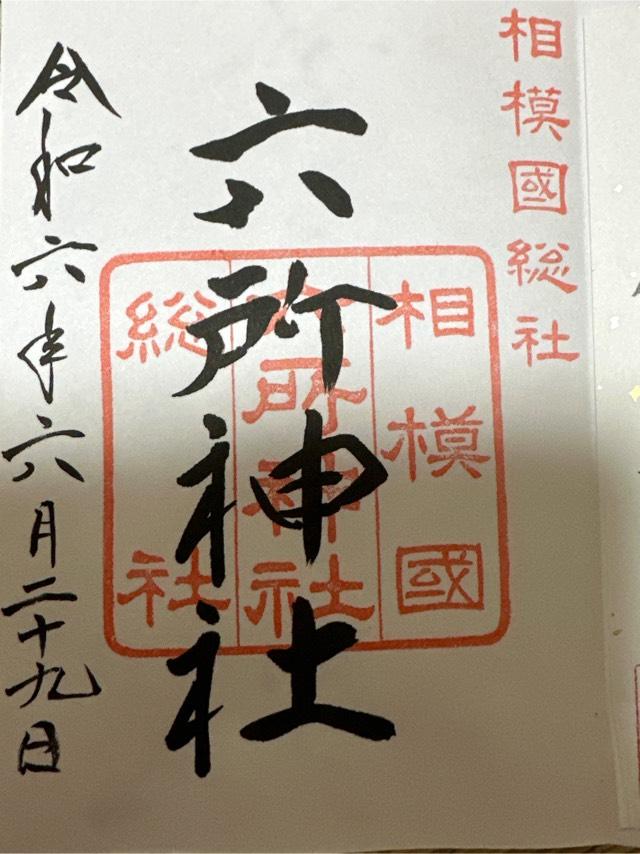 相模國総社
六所神社
相模國
六所神社
総社
令和六年六月二十九日